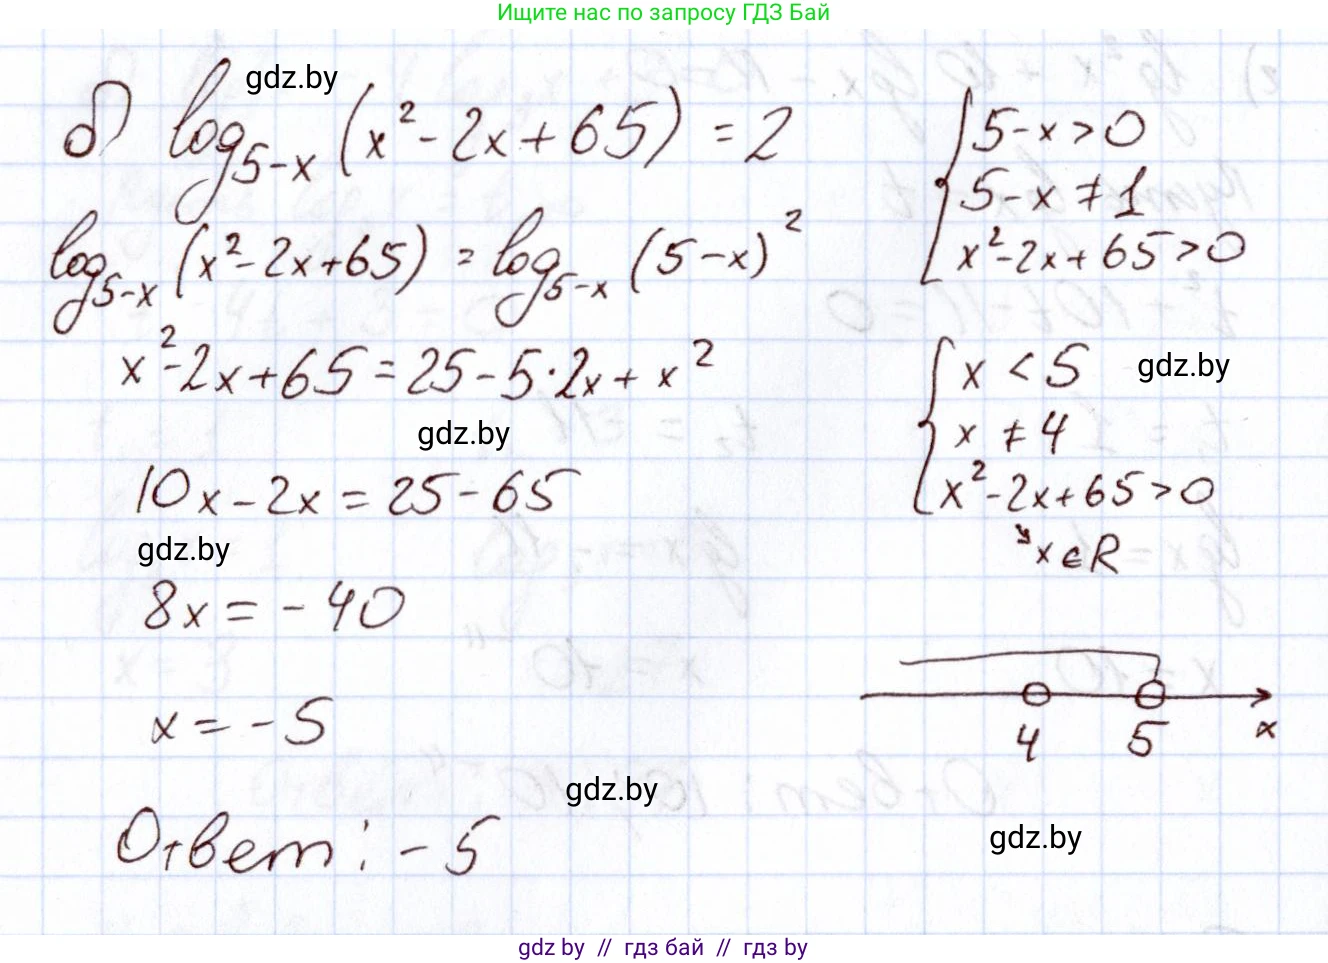 Ищите нас по запросу ГДЗ Бай
gdz.by
б) log_{5-x} (x² - 2x + 65) = 2
log_{5-x} (x² - 2x + 65) = log_{5-x} (5 - x)²
x² - 2x + 65 = 25 - 5·2x + x²
gdz.by
10x - 2x = 25 - 65
gdz.by
8x = - 40
x = - 5
gdz.by
Ответ: - 5
{ 5 - x > 0
5 - x ≠ 1
x² - 2x + 65 > 0
{ x < 5
gdz.by
x ≠ 4
x² - 2x + 65 > 0
↘ x ∈ R
4 5 x
gdz.by
gdz by // гдз бай // гдз by